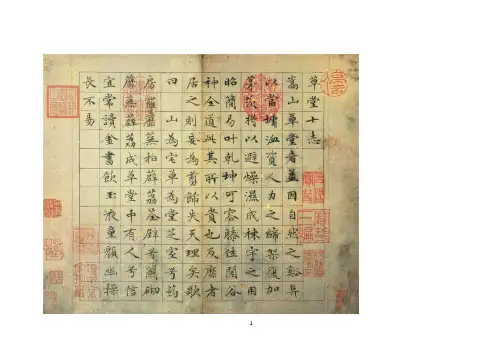 草堂十志
嵩山草堂者蓋因自然之谿阜
以當墉洫資人力之締架復加
茅茨将以避燥濕成棟宇之用
昭簡易叶乾坤可容膝休閑谷
神全道此其所以貴也及靡者
居之則妄為剪飾失天理矣歌
曰 山為宅草為堂芝室兮葯
房羅蘼蕪拍薜荔荃壁兮蘭砌
蘼蕪薜荔成草堂中有人兮信
宜常讀金書飲玉液童顏幽操
長不易
1